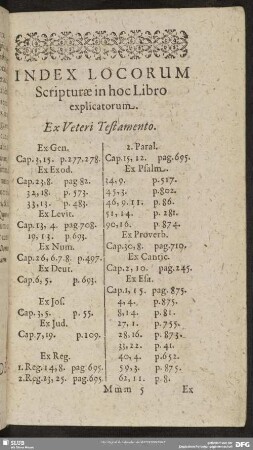 INDEX LOCORUM
Scripturæ in hoc Libro
explicatorum.
Ex Veteri Testamento.
Ex Gen.
Cap. 3, 15. p. 277. 278.
Ex Exod.
Cap. 23. 8. pag 82.
32, 18. p. 573.
33, 13. p. 483.
Ex Levit.
Cap. 13, 4. pag 708.
19, 13. p. 693.
Ex Num.
Cap. 26, 6. 7. 8. p. 497.
Ex Deut.
Cap. 6, 5. p. 693.
Ex Jos.
Cap. 3, 5. p. 55.
Ex Jud.
Cap. 7, 19. p. 109.
Ex Reg.
1. Reg. 14, 8. pag. 695.
2. Reg. 23, 25. pag. 695.
2. Paral.
Cap. 15, 12. pag. 695.
Ex Psalm.
34. 9. p. 517.
45. 3. p. 802.
46, 9. 11. p. 86.
51, 14. p. 281.
90, 16. p. 874.
Ex Proverb.
Cap. 30, 8. pag. 719.
Ex Cantic.
Cap. 2, 10. pag. 245.
Ex Esa.
Cap. 1, 15. pag. 875.
4, 4. p. 875.
8, 14. p. 81.
27, 1. p. 755.
28, 16. p. 873.
33, 22. p. 41.
40, 4. p. 652.
59, 3. p. 875.
61, 11. p. 8.
Mmm 5 Ex
SLUB
DFG